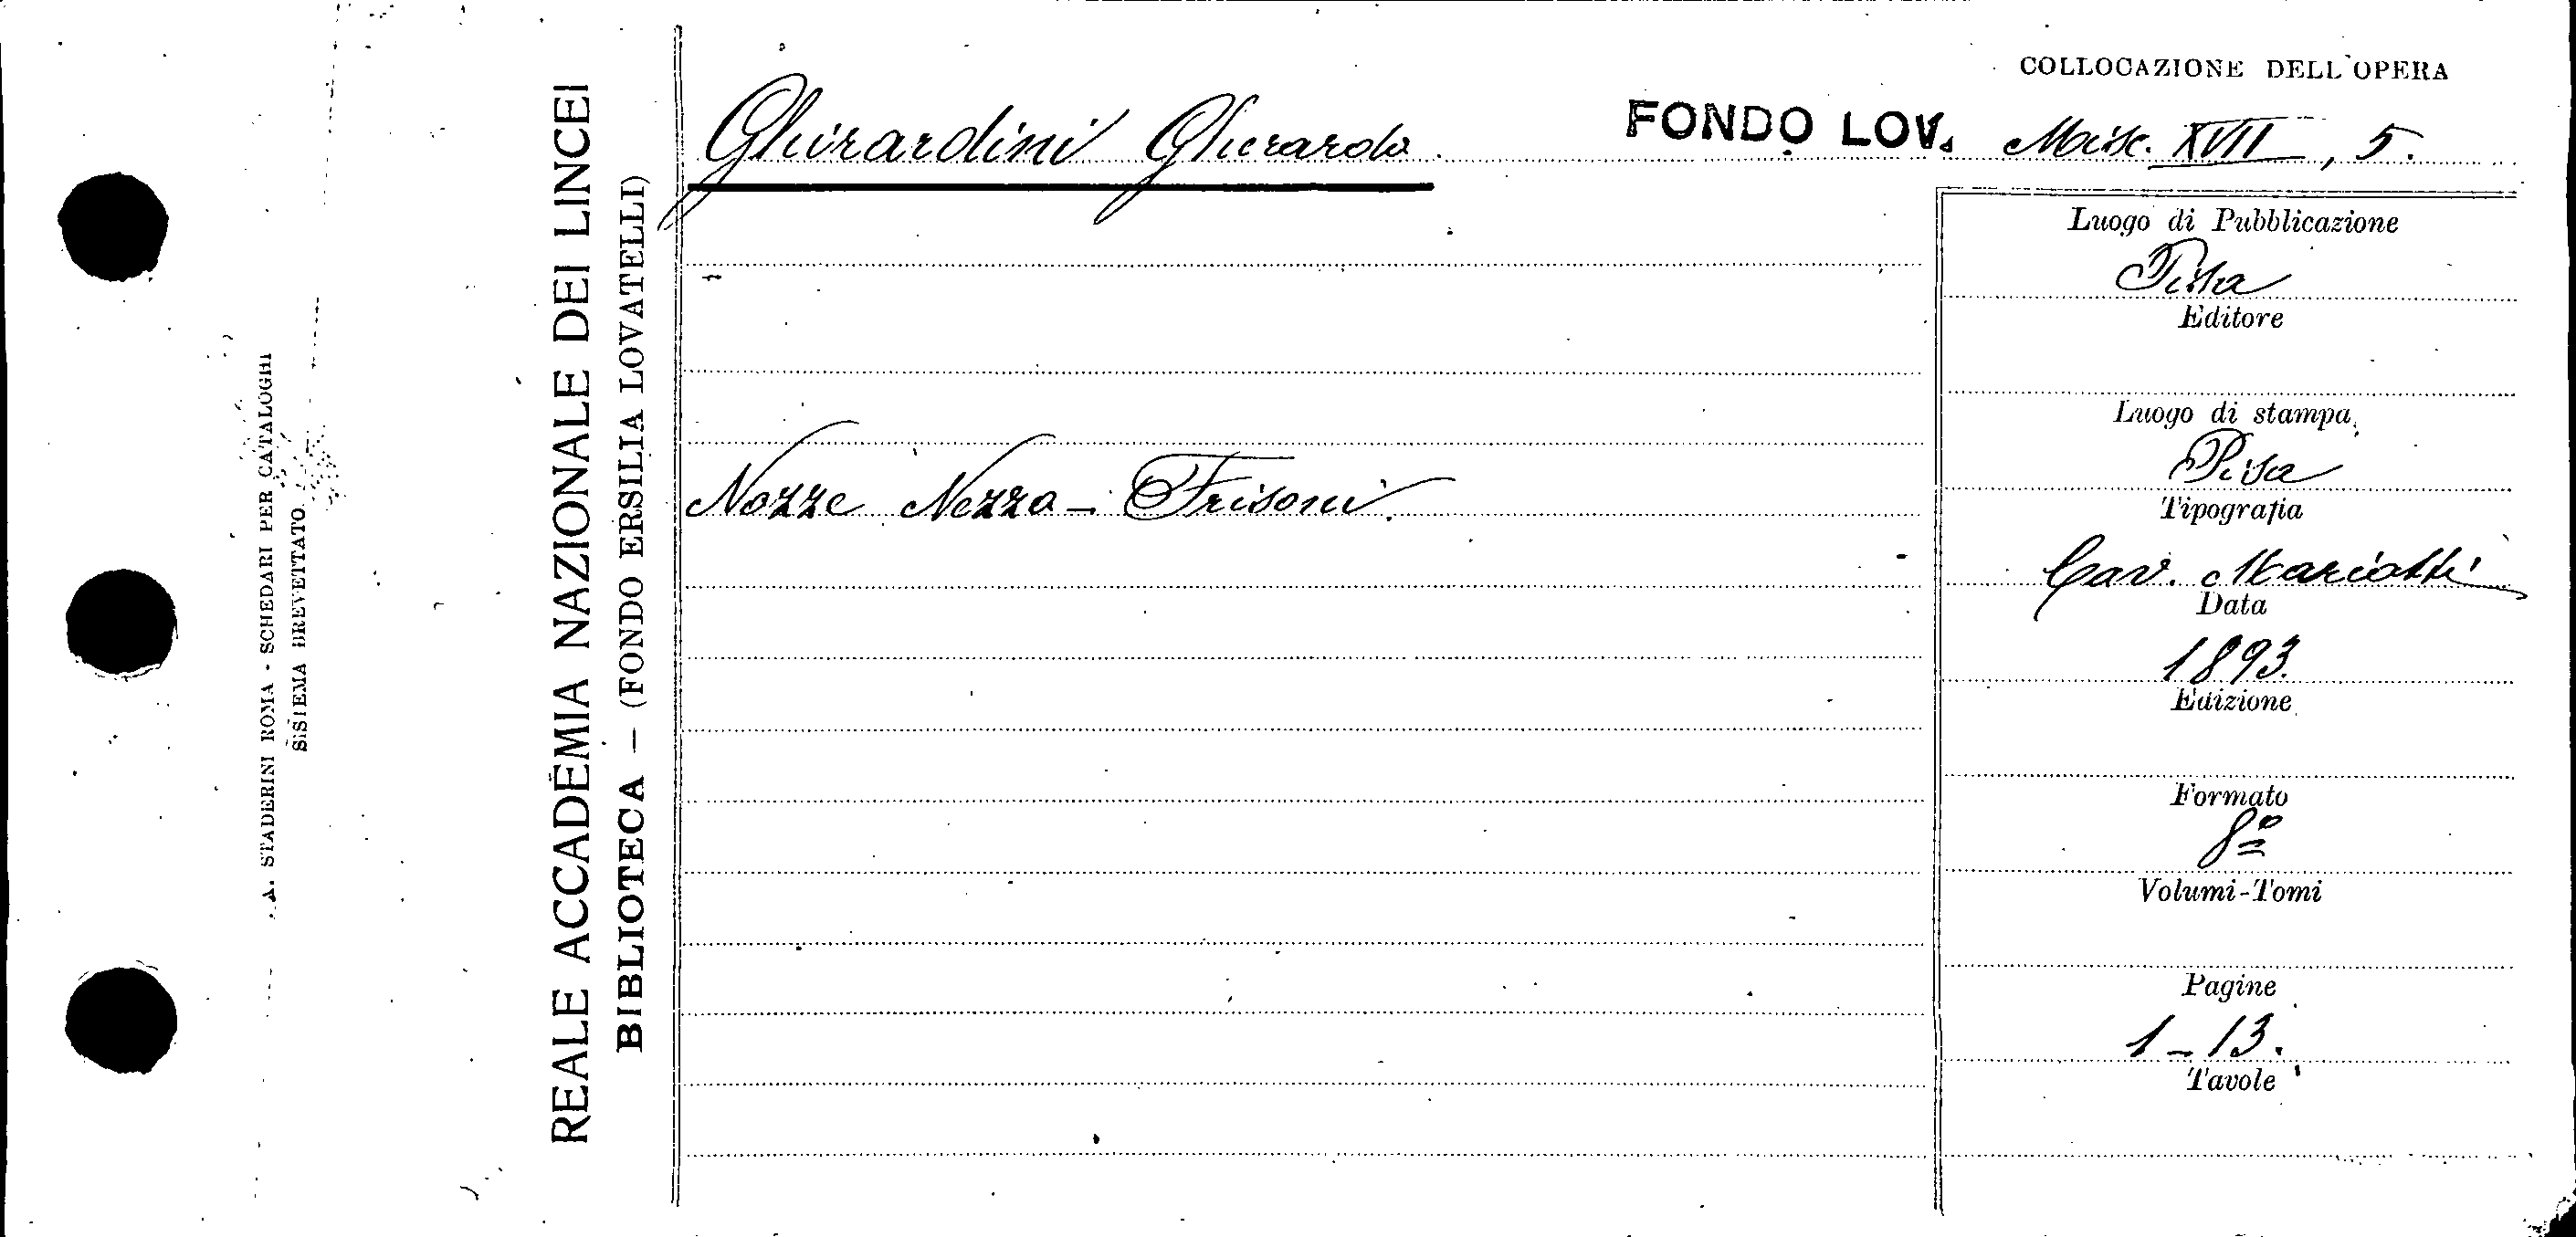 A. STADERINI ROMA - SCHEDARI PER CATALOGHI
SISTEMA BREVETTATO
REALE ACCADEMIA NAZIONALE DEI LINCEI
BIBLIOTECA — (FONDO ERSILIA LOVATELLI)
COLLOCAZIONE DELL'OPERA
Ghirardini Gherardo. FONDO LOV. Misc. XVII, 5.
Nozze Nezza - Frisoni.
Luogo di Pubblicazione
Pisa
Editore
Luogo di stampa
Pisa
Tipografia
Cav. Mariotti
Data
1893.
Edizione
Formato
8º
Volumi-Tomi
Pagine
1-13.
Tavole